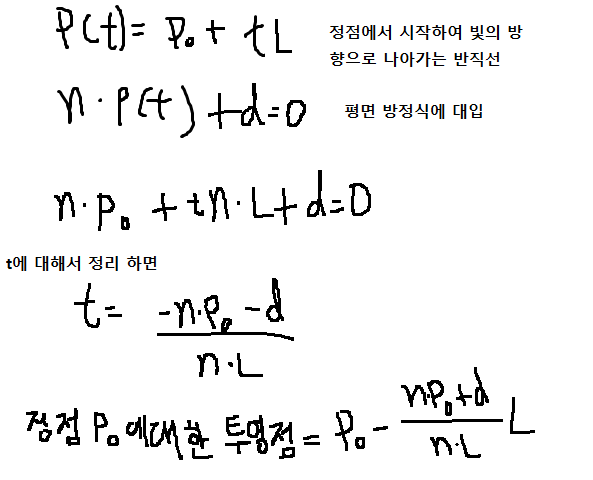 P(t) = P₀ + tL 정점에서 시작하여 빛의 방
향으로 나아가는 반직선
n · P(t) + d = 0 평면 방정식에 대입
n · P₀ + tn · L + d = 0
t에 대해서 정리 하면
t = (-n·P₀ - d) / (n·L)
정점 P₀에대한 투영점 = P₀ - (n·P₀+d) / (n·L) L